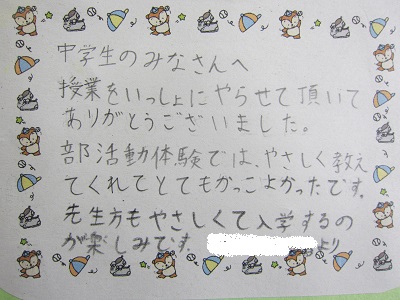 中学生のみなさんへ
授業をいっしょにやらせて頂いて
ありがとうございました。
部活動体験では、やさしく教え
てくれてとてもかっこよかったです。
先生方もやさしくて入学するの
が楽しみです。
より